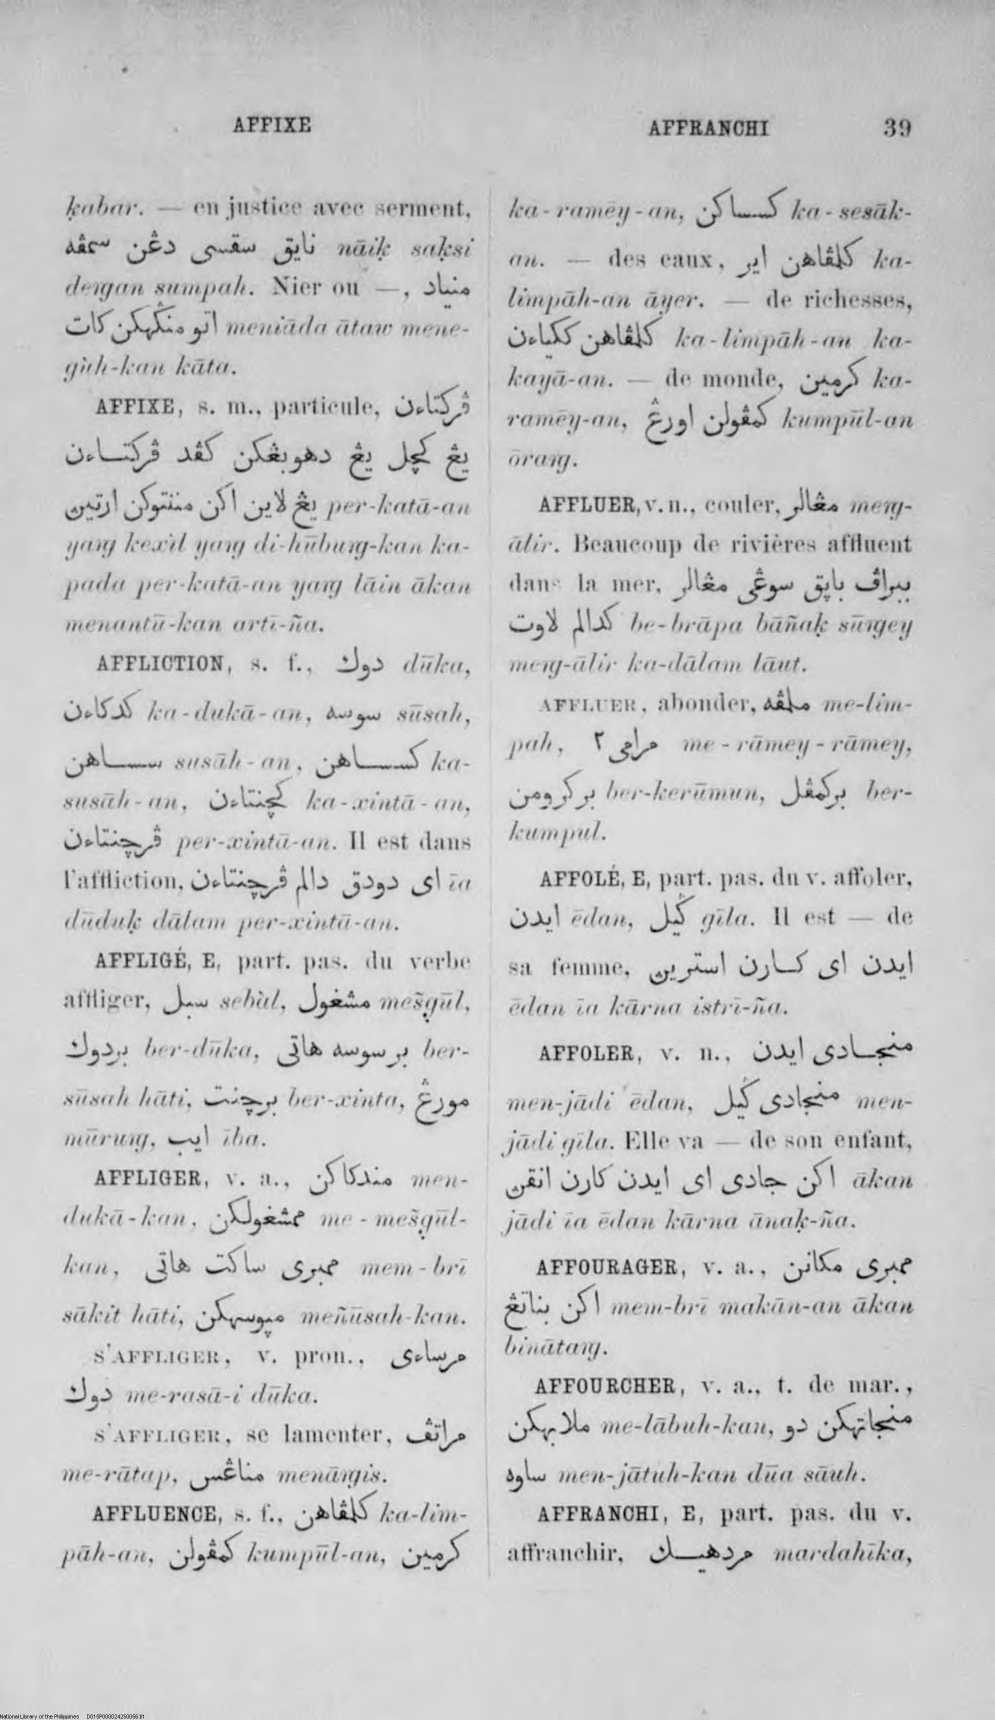 AFFIXE
AFFRANCHI 39
ḳabar. — en justice avec serment,
نايق سقسى دڠن سمڤه nāiḳ saḳsi
deṅgan sumpah. Nier ou —, منياد
اتو منڬهكن كات meniāda ātaw mene-
gùh-kan kāta.
AFFIXE, s. m., particule, ڤركتاءن
يڠ كچل يڠ دهوبڠكن كڤد ڤركتاءن
يڠ لاين اكن مننتوكن ارتين per-katā-an
yaṅg kexìl yaṅg di-hūbuṅg-kan ka-
pada per-katā-an yaṅg lāin ākan
menantū-kan artī-ña.
AFFLICTION, s. f., دوك dūka,
كدكاءن ka-dukā-an, سوسه sūsah,
سساهن susāh-an, كسساهن ka-
susāh-an, كچنتاءن ka-xintā-an,
ڤرچنتاءن per-xintā-an. Il est dans
l'affliction, اى دودق دالم ڤرچنتاءن īa
dūduḳ dālam per-xintā-an.
AFFLIGÉ, E, part. pas. du verbe
affliger, سبل sebàl, مشغول mešg̣ūl,
بردوك ber-dūka, بر سوسه هاتى ber-
sūsah hāti, برچنت ber-xinta, مورڠ
mūruṅg, ايب ība.
AFFLIGER, v. a., مندكاكن men-
dukā-kan, ممشغولكن me-mešg̣ūl-
kan, ممبرى ساكت هاتى mem-brī
sākit hāti, ميوسهكن meñūsah-kan.
S'AFFLIGER, v. pron., مرساءى
دوك me-rasā-i dūka.
S'AFFLIGER, se lamenter, مراتڤ
me-rātap, مناڠس menāṅgis.
AFFLUENCE, s. f., كلمڤاهن ka-lim-
pāh-an, كمڤولن kumpūl-an, كرمين
ka-ramēy-an, كسساكن ka-sesāk-
an. — des eaux, كلمڤاهن اير ka-
limpāh-an āyer. — de richesses,
كلمڤاهن ككياءن ka-limpāh-an ka-
kayā-an. — de monde, كرمين ka-
ramēy-an, كمڤولن اورڠ kumpūl-an
ōraṅg.
AFFLUER, v. n., couler, مڠالر meṅg-
ālir. Beaucoup de rivières affluent
dans la mer, ببراڤ باپق سوڠى مڠالر
كدالم لاوت be-brāpa bāñaḳ sūṅgey
meṅg-ālir ka-dālam lāut.
AFFLUER, abonder, ملمڤه me-lim-
pah, مرامى ٢ me-rāmey-rāmey,
بركرومن ber-kerūmun, بركمڤل ber-
kumpul.
AFFOLÉ, E, part. pas. du v. affoler,
ايدن ēdan, ڬيل gīla. Il est — de
sa femme, ايدن اى كارن استرين
ēdan īa kārna istrī-ña.
AFFOLER, v. n., منجادى ايدن
men-jādi ēdan, منجادى ڬيل men-
jādi gīla. Elle va — de son enfant,
اكن جادى اى ايدن كارن انقن ākan
jādi īa ēdan kārna ānaḳ-ña.
AFFOURAGER, v. a., ممبرى مكانن
اكن بناتڠ mem-brī makān-an ākan
bināταṅg.
AFFOURCHER, v. a., t. de mar.,
ملابهكن me-lābuh-kan, منجاتهكن دو
ساوه men-jātuh-kan dūa sāuh.
AFFRANCHI, E, part. pas. du v.
affranchir, مردهيك mardahīka,
National Library of the Philippines